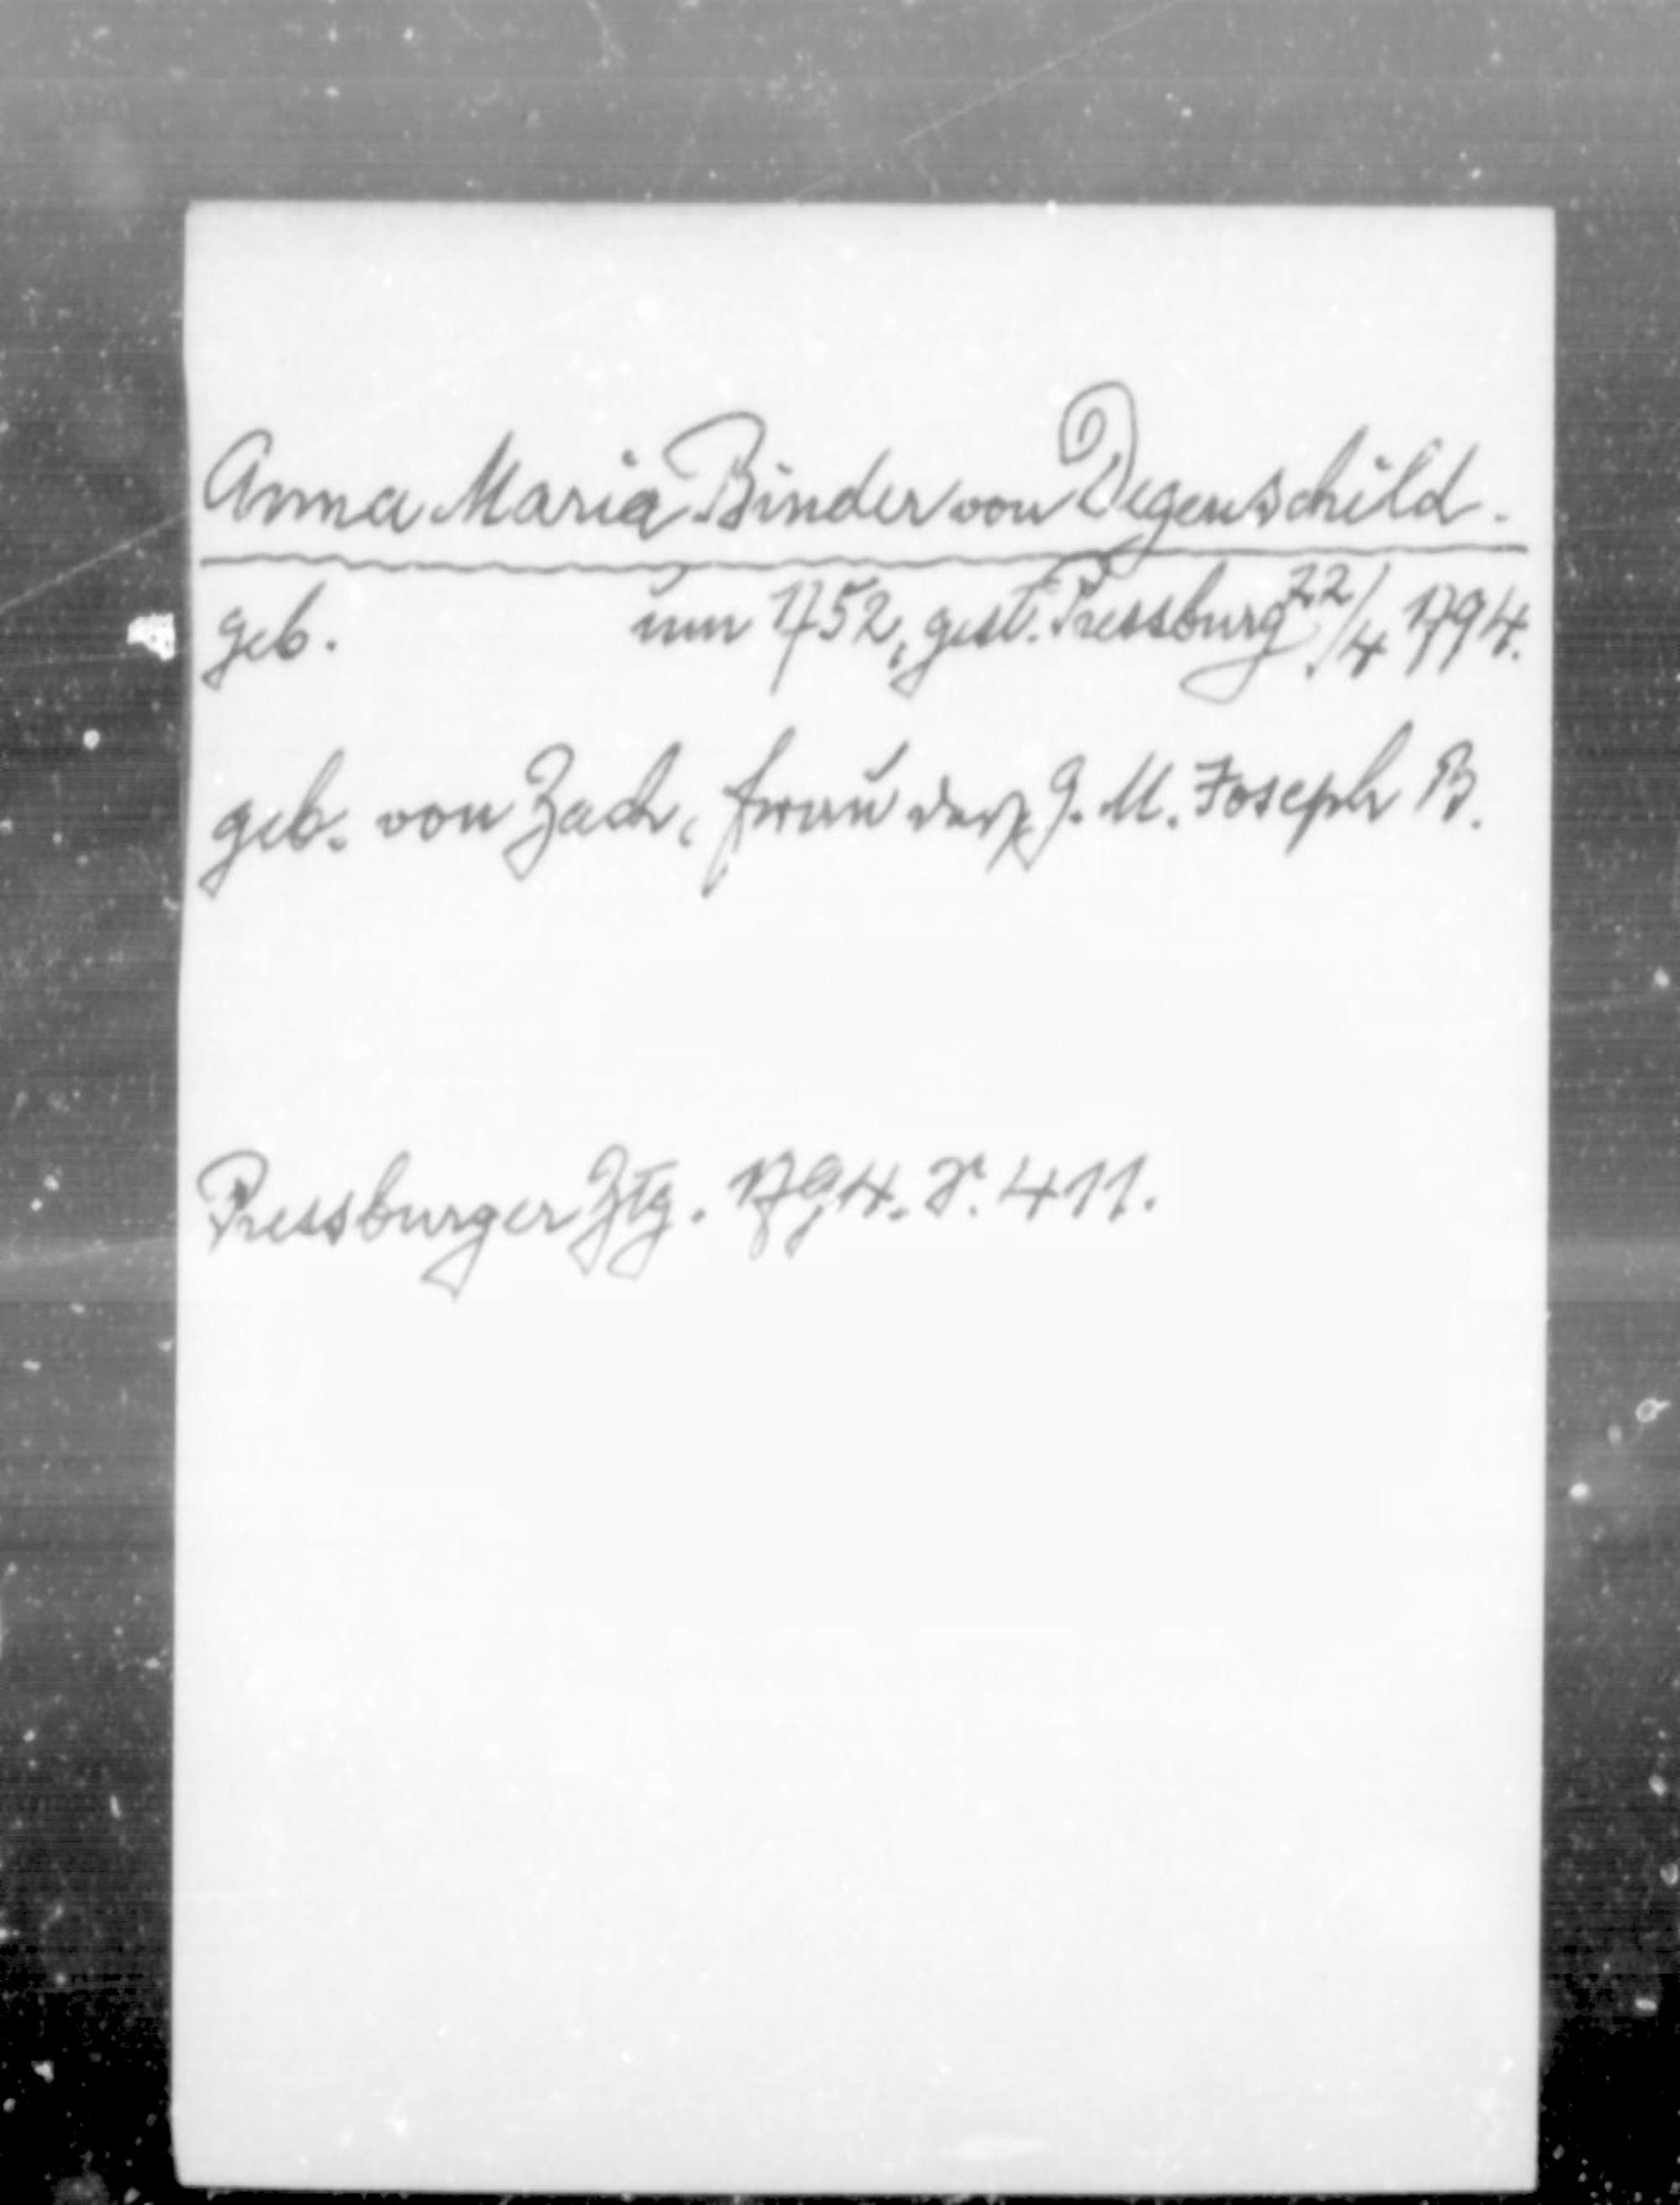 Anna Maria Binder von Degenschild.
geb. um 1752, gest. Pressburg 22/4 1794.
geb. von Zach, Frau des G. M. Joseph B.
Pressburger Ztg. 1794. S. 411.